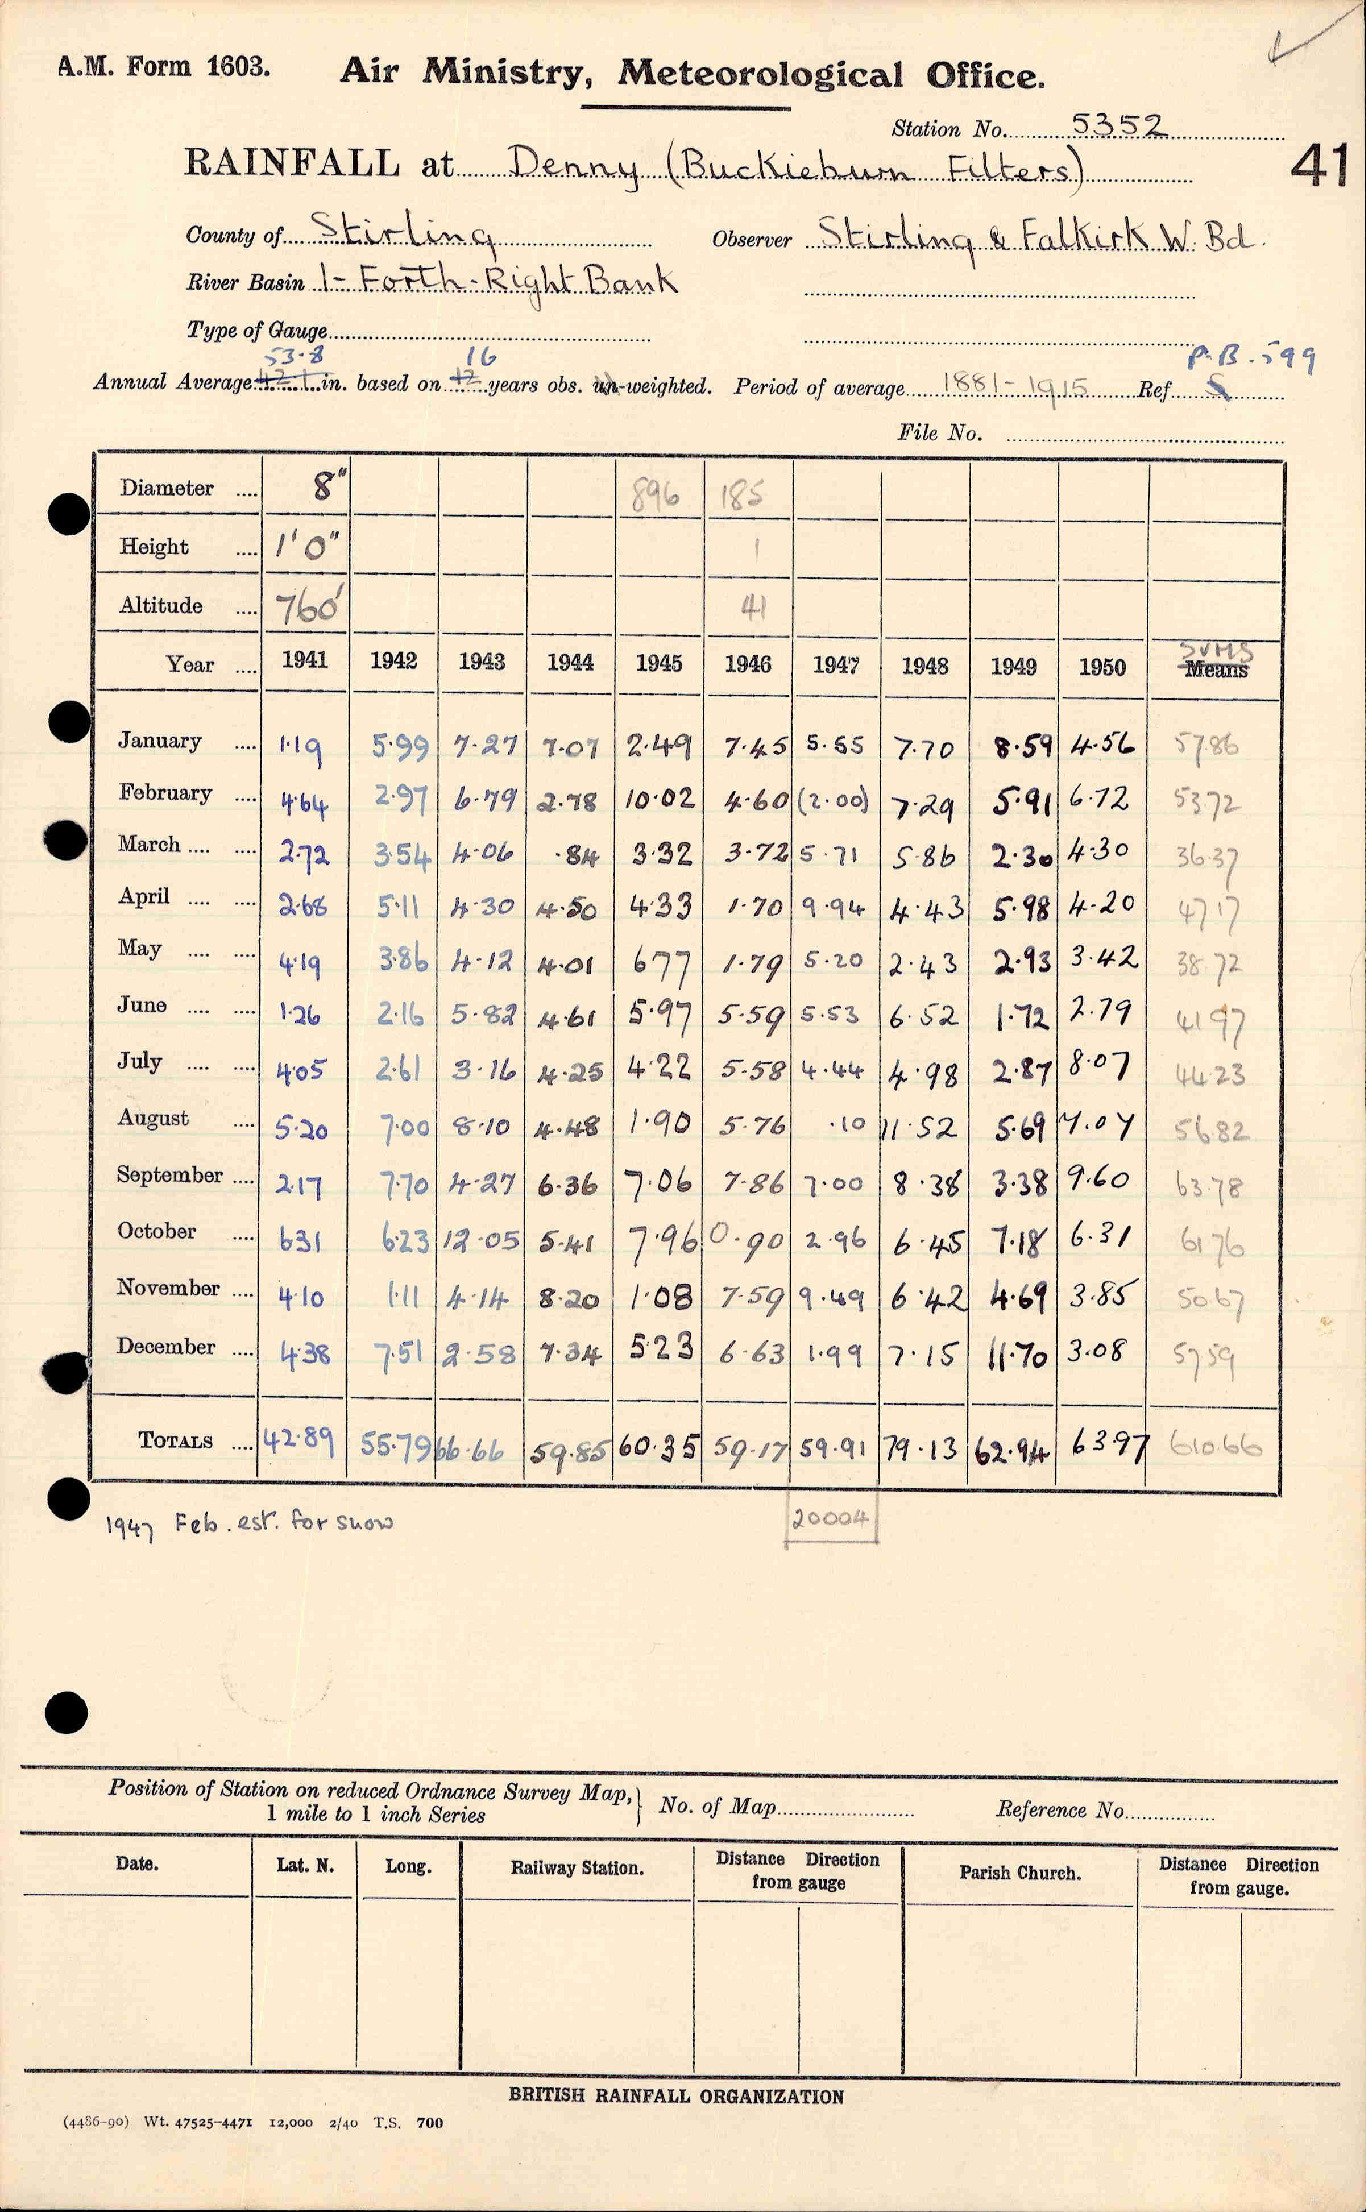 A.M. Form 1603.
Air Ministry, Meteorological Office.
Station No. 5352
RAINFALL at Denny (Buckieburn Filters)
41
County of Stirling Observer Stirling & Falkirk W. Bd.
River Basin 1- Forth - Right Bank
Type of Gauge
53.8 16 P.B. 599
Annual Average 42.1 in. based on 12 years obs. un-weighted. Period of average 1881-1915 Ref. S
File No.
Diameter .... 8" 896 185
Height .... 1' 0" 1
Altitude .... 760' 41
SUMS
Year .... 1941 1942 1943 1944 1945 1946 1947 1948 1949 1950 Means
January .... 1.19 5.99 7.27 7.07 2.49 7.45 5.55 7.70 8.59 4.56 57.86
February .... 4.64 2.97 6.79 2.78 10.02 4.60 (2.00) 7.29 5.91 6.72 53.72
March .... .... 2.72 3.54 4.06 .84 3.32 3.72 5.71 5.86 2.30 4.30 36.37
April .... .... 2.68 5.11 4.30 4.50 4.33 1.70 9.94 4.43 5.98 4.20 47.17
May .... .... 4.19 3.86 4.12 4.01 6.77 1.79 5.20 2.43 2.93 3.42 38.72
June .... .... 1.26 2.16 5.82 4.61 5.97 5.59 5.53 6.52 1.72 2.79 41.97
July .... .... 4.05 2.61 3.16 4.25 4.22 5.58 4.44 4.98 2.87 8.07 44.23
August .... 5.20 7.00 8.10 4.48 1.90 5.76 .10 11.52 5.69 7.07 56.82
September .... 2.17 7.70 4.27 6.36 7.06 7.86 7.00 8.38 3.38 9.60 63.78
October .... 6.31 6.23 12.05 5.41 7.96 0.90 2.96 6.45 7.18 6.31 61.76
November .... 4.10 1.11 4.14 8.20 1.08 7.59 9.49 6.42 4.69 3.85 50.67
December .... 4.38 7.51 2.58 7.34 5.23 6.63 1.99 7.15 11.70 3.08 57.59
TOTALS .... 42.89 55.79 66.66 59.85 60.35 59.17 59.91 79.13 62.94 63.97 610.66
1947 Feb. est. for snow
20004
Position of Station on reduced Ordnance Survey Map,
1 mile to 1 inch Series
No. of Map Reference No.
Date. Lat. N. Long. Railway Station. Distance Direction from gauge Parish Church. Distance Direction from gauge.
BRITISH RAINFALL ORGANIZATION
(4486-90) Wt. 47525-4471 12,000 2/40 T.S. 700